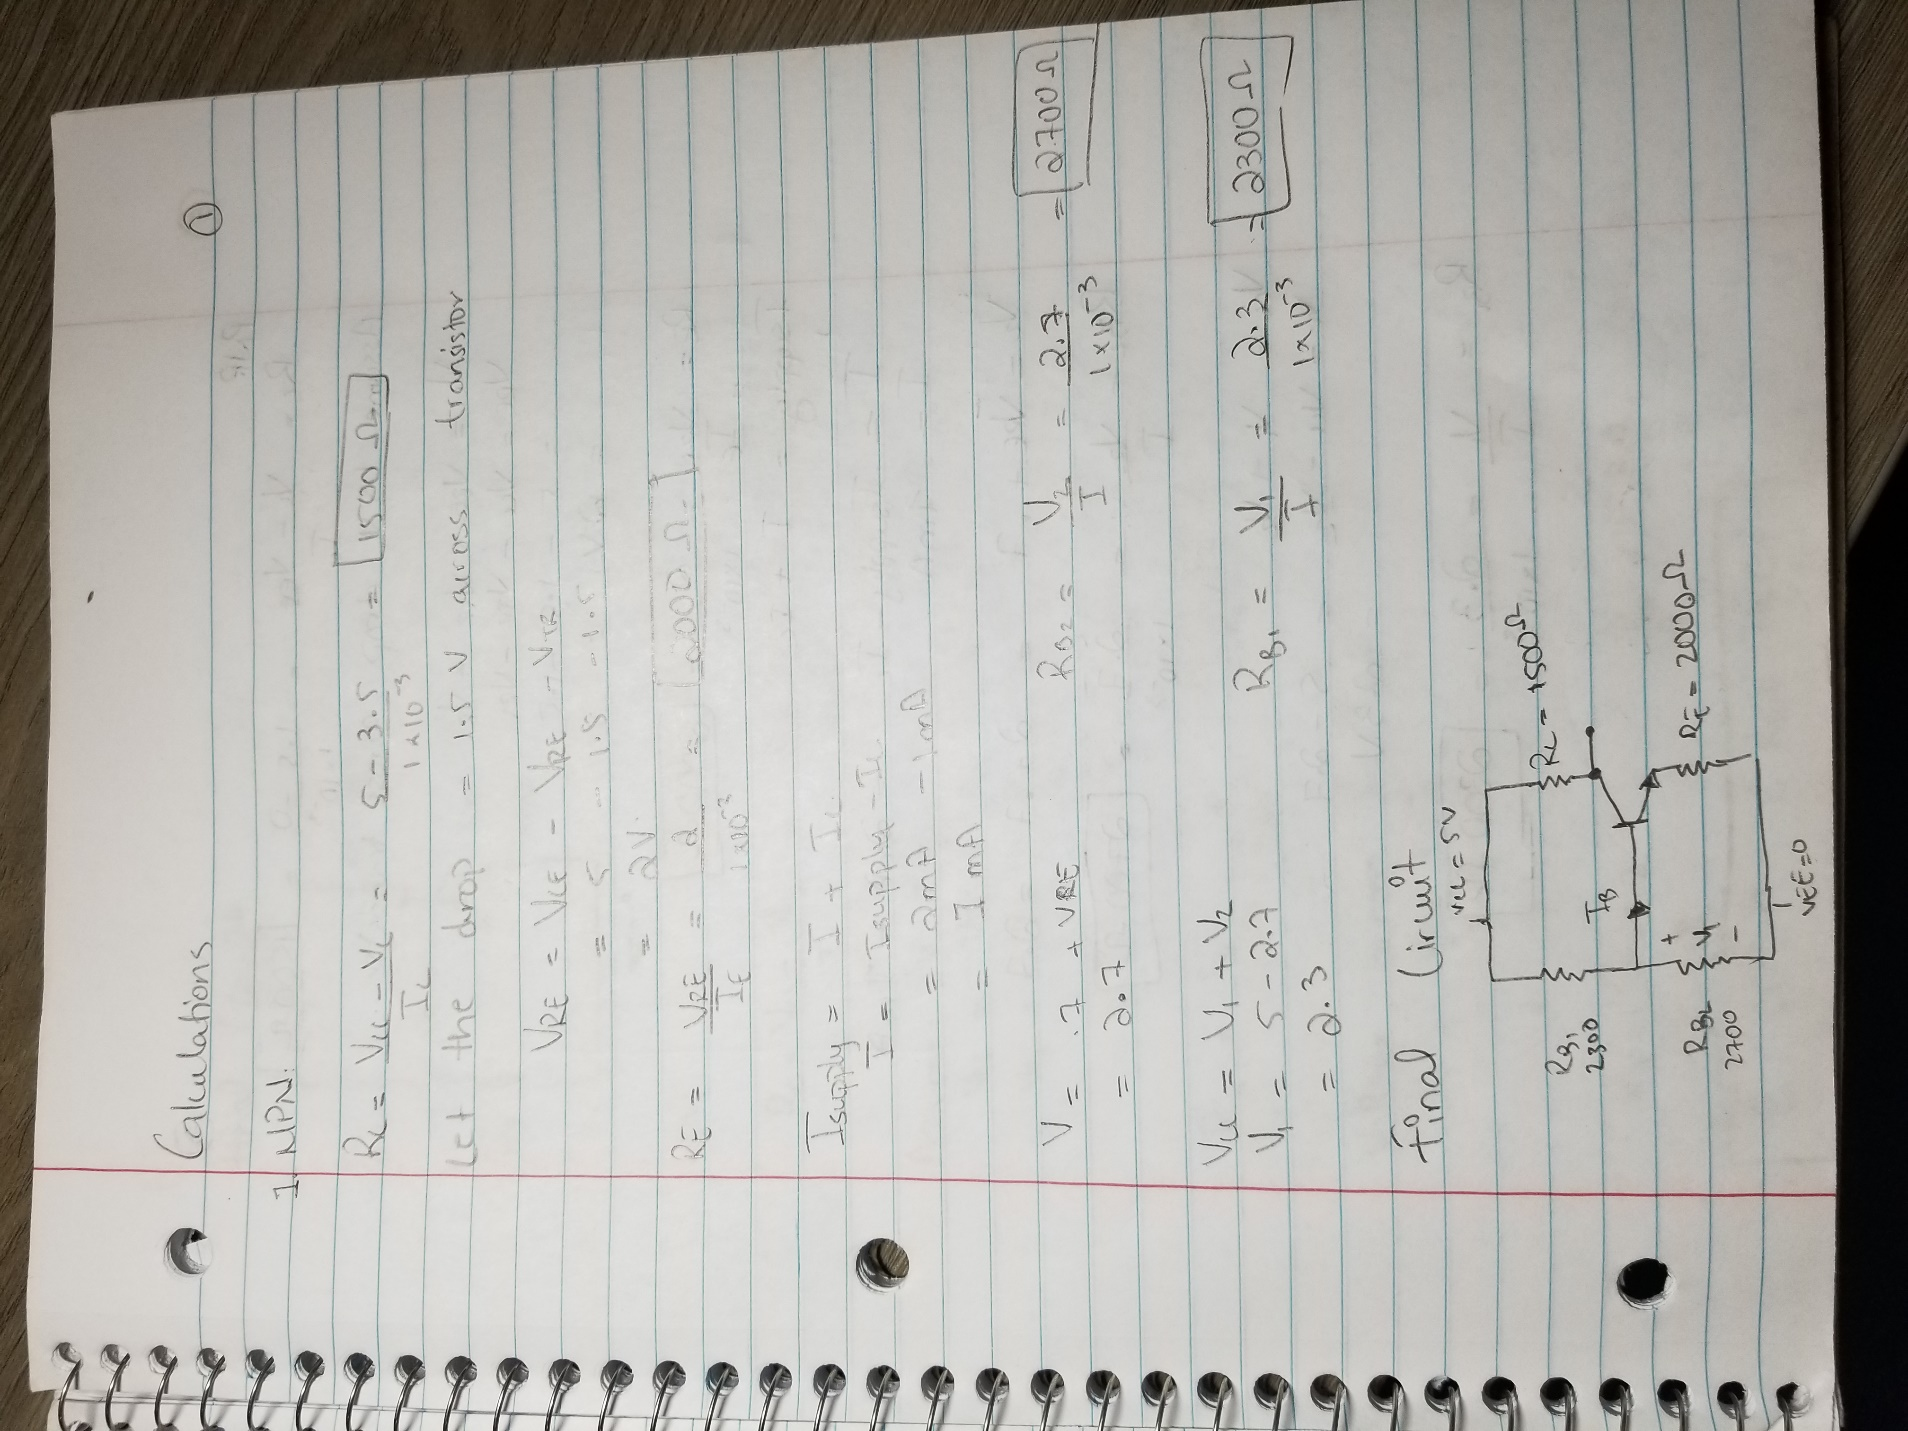 Calculations
①
1. NPN:
RC = VCC - VC / IC = 5 - 3.5 / 1x10^-3 = 1500 Ω
Let the drop = 1.5 V across transistor
VRE = VCE - VRE - VTR
= 5 - 1.5 - 1.5
= 2V
RE = VRE / IE = 2 / 1x10^-3 = 2000 Ω
Isupply = I + IC
I = Isupply - IC
= 2mA - 1mA
= 1mA
V = .7 + VRE RB2 = V2 / I = 2.7 / 1x10^-3 = 2700 Ω
= 2.7
VCC = V1 + V2
V1 = 5 - 2.7 RB1 = V1 / I = 2.3V / 1x10^-3 = 2300 Ω
= 2.3
Final Circuit
VCC = 5V
RB1
2300
RC = 1500Ω
IB
RB2
2700
+
V1
-
RE = 2000Ω
VEE = 0